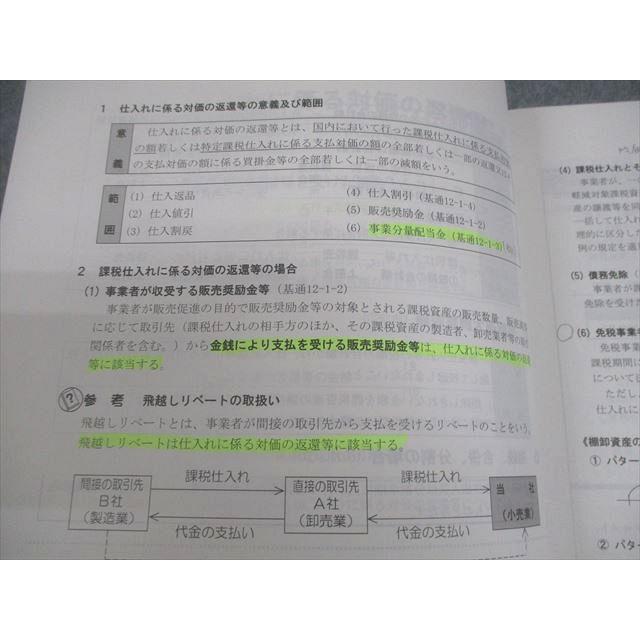 1 仕入れに係る対価の返還等の意義及び範囲
意義
仕入れに係る対価の返還等とは、国内において行った課税仕入れに係る支払対価
の額若しくは特定課税仕入れに係る支払対価の額の全部若しくは一部の返還又は
の支払対価の額に係る買掛金等の全部若しくは一部の減額をいう。
範囲
(1) 仕入返品
(2) 仕入値引
(3) 仕入割戻
(4) 仕入割引（基通12-1-4）
(5) 販売奨励金（基通12-1-2）
(6) 事業分量配当金（基通12-1-3）
2 課税仕入れに係る対価の返還等の場合
(1) 事業者が収受する販売奨励金等（基通12-1-2）
事業者が販売促進の目的で販売奨励金等の対象とされる課税資産の販売数量、販売高等
に応じて取引先（課税仕入れの相手方のほか、その課税資産の製造者、卸売業者等の取引
関係者を含む。）から金銭により支払を受ける販売奨励金等は、仕入れに係る対価の返還
等に該当する。
? 参 考 飛越しリベートの取扱い
飛越しリベートとは、事業者が間接の取引先から支払を受けるリベートのことをいう。
飛越しリベートは仕入れに係る対価の返還等に該当する。
間接の取引先
B社
（製造業）
課税仕入れ
代金の支払い
直接の取引先
A社
（卸売業）
課税仕入れ
代金の支払い
当 社
（小売業）
(4) 課税仕入れとそ
事業者が、一
軽減対象課税資
産の譲渡等を同
一括して仕入れ
理的に区分した
例の規定を適
(5) 債務免除
事業者が課
免除を受け
(6) 免税事業者
免税事業
課税期間に
について
ただし
仕入れに
《棚卸資産の
① パター
② パタ